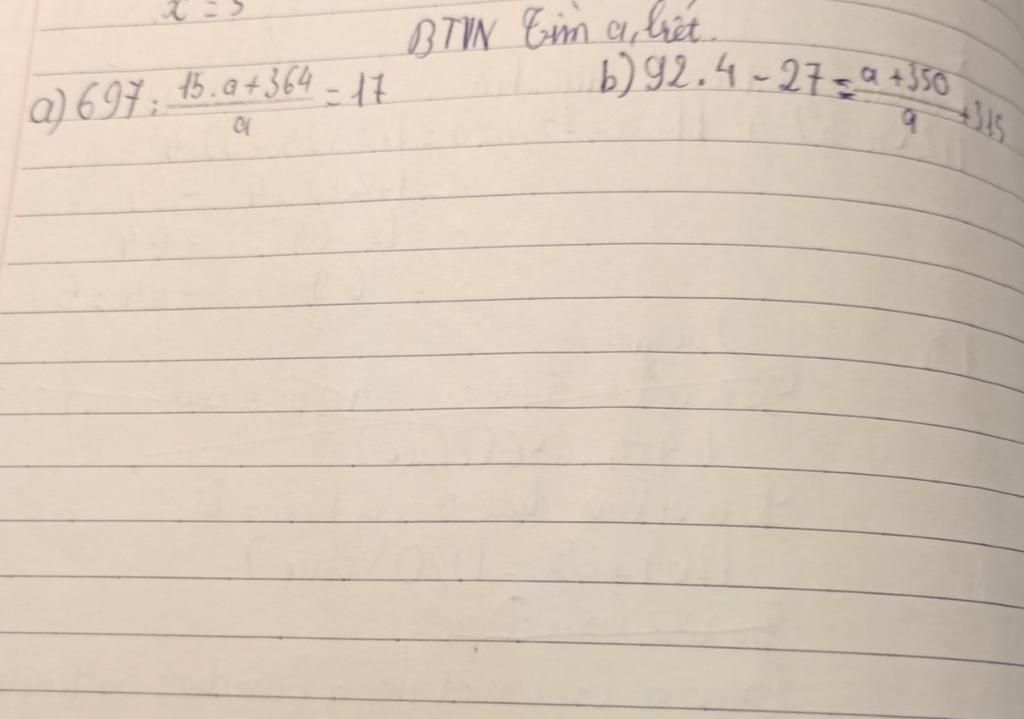 x = 5
BTVN Tìm a, biết.
a) 697 : \frac{15.a+364}{a} = 17
b) 92.4 - 27 = \frac{a+350}{a} + 315